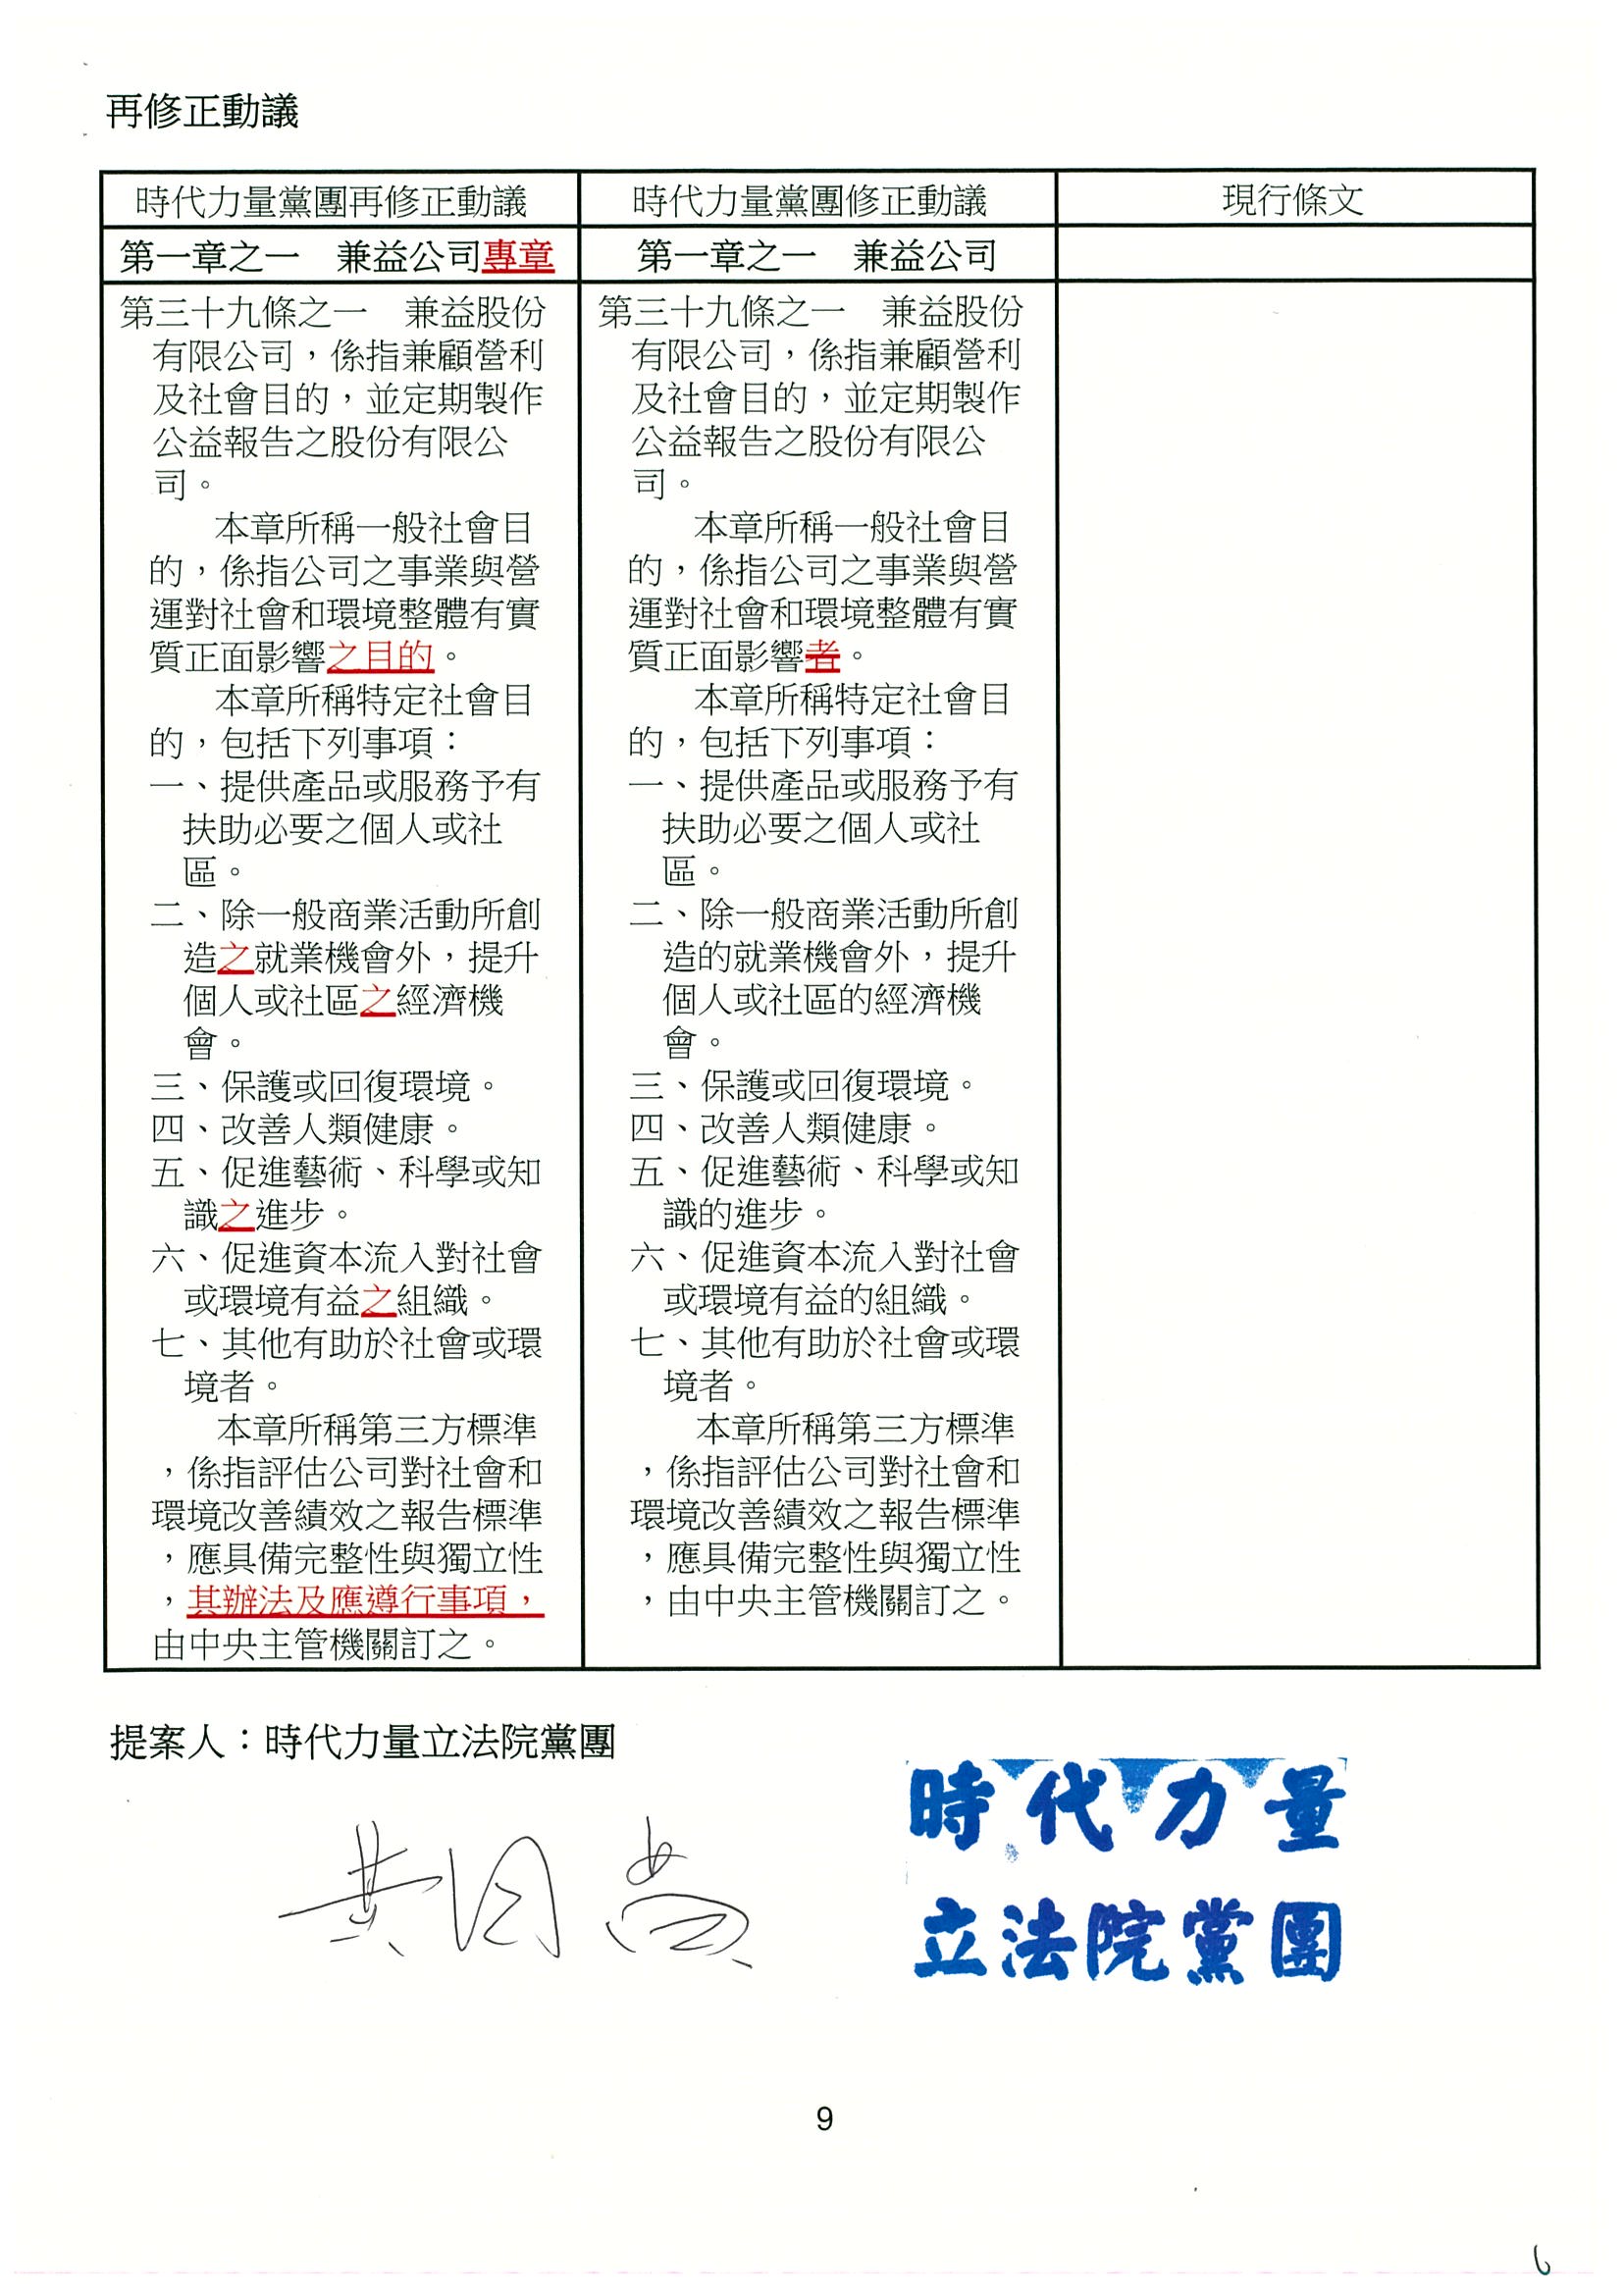 再修正動議
時代力量黨團再修正動議
時代力量黨團修正動議
現行條文
第一章之一　兼益公司專章
第一章之一　兼益公司
第三十九條之一　兼益股份
有限公司，係指兼顧營利
及社會目的，並定期製作
公益報告之股份有限公
司。
本章所稱一般社會目
的，係指公司之事業與營
運對社會和環境整體有實
質正面影響之目的。
本章所稱特定社會目
的，包括下列事項：
一、提供產品或服務予有
扶助必要之個人或社
區。
二、除一般商業活動所創
造之就業機會外，提升
個人或社區之經濟機
會。
三、保護或回復環境。
四、改善人類健康。
五、促進藝術、科學或知
識之進步。
六、促進資本流入對社會
或環境有益之組織。
七、其他有助於社會或環
境者。
本章所稱第三方標準
，係指評估公司對社會和
環境改善績效之報告標準
，應具備完整性與獨立性
，其辦法及應遵行事項，
由中央主管機關訂之。
第三十九條之一　兼益股份
有限公司，係指兼顧營利
及社會目的，並定期製作
公益報告之股份有限公
司。
本章所稱一般社會目
的，係指公司之事業與營
運對社會和環境整體有實
質正面影響者。
本章所稱特定社會目
的，包括下列事項：
一、提供產品或服務予有
扶助必要之個人或社
區。
二、除一般商業活動所創
造的就業機會外，提升
個人或社區的經濟機
會。
三、保護或回復環境。
四、改善人類健康。
五、促進藝術、科學或知
識的進步。
六、促進資本流入對社會
或環境有益的組織。
七、其他有助於社會或環
境者。
本章所稱第三方標準
，係指評估公司對社會和
環境改善績效之報告標準
，應具備完整性與獨立性
，由中央主管機關訂之。
提案人：時代力量立法院黨團
時代力量
立法院黨團
9
6